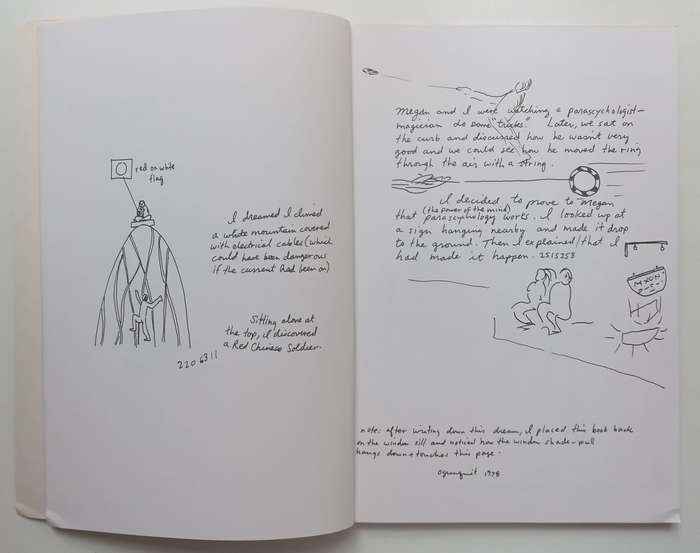 red on white
flag
I dreamed I climed
a white mountain covered
with electrical cables (which
could have been dangerous
if the current had been on)
Sitting alone at
the top, I discovered
a Red Chinese Soldier.
2206311
Megan and I were watching a parascychologist-
magician do some "tricks." Later, we sat on
the curb and discussed how he wasn't very
good and we could see how he moved the ring
through the air with a string.
I decided to prove to Megan
(the power of the mind)
that parascychology works. I looked up at
a sign hanging nearby and made it drop
to the ground. Then I explained that I
had made it happen. 2515253
note: after writing down this dream, I placed this book back
on the window sill and noticed how the window shade-pull
hangs down + touches this page.
ogunquit 1978